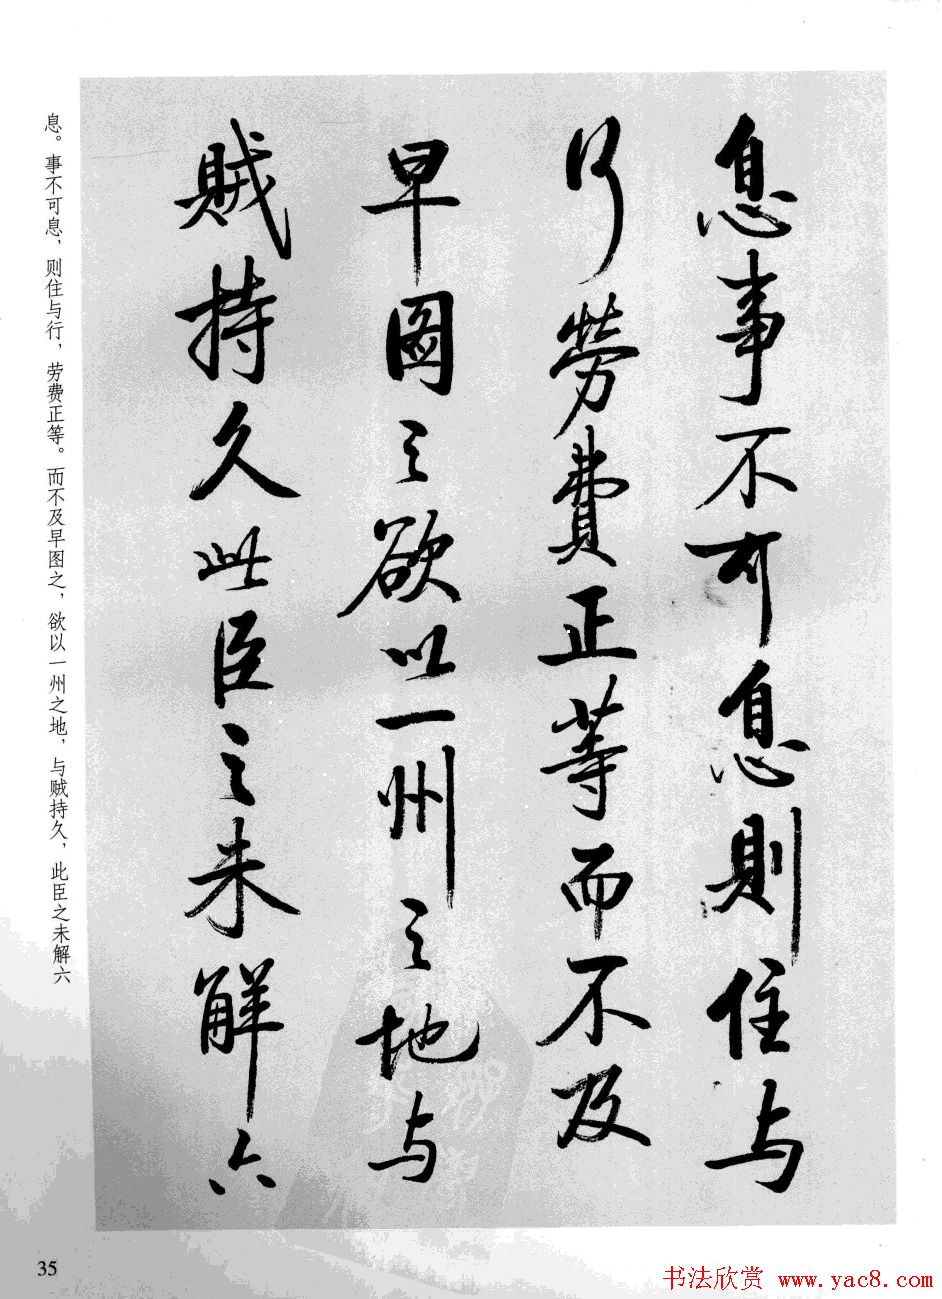 息事不可息則住与
行勞費正等而不及
早圖之欲以一州之地与
賊持久此臣之未解六
息。事不可息，则住与行，劳费正等。而不及早图之，欲以一州之地，与贼持久，此臣之未解六
35
书法欣赏 www.yac8.com